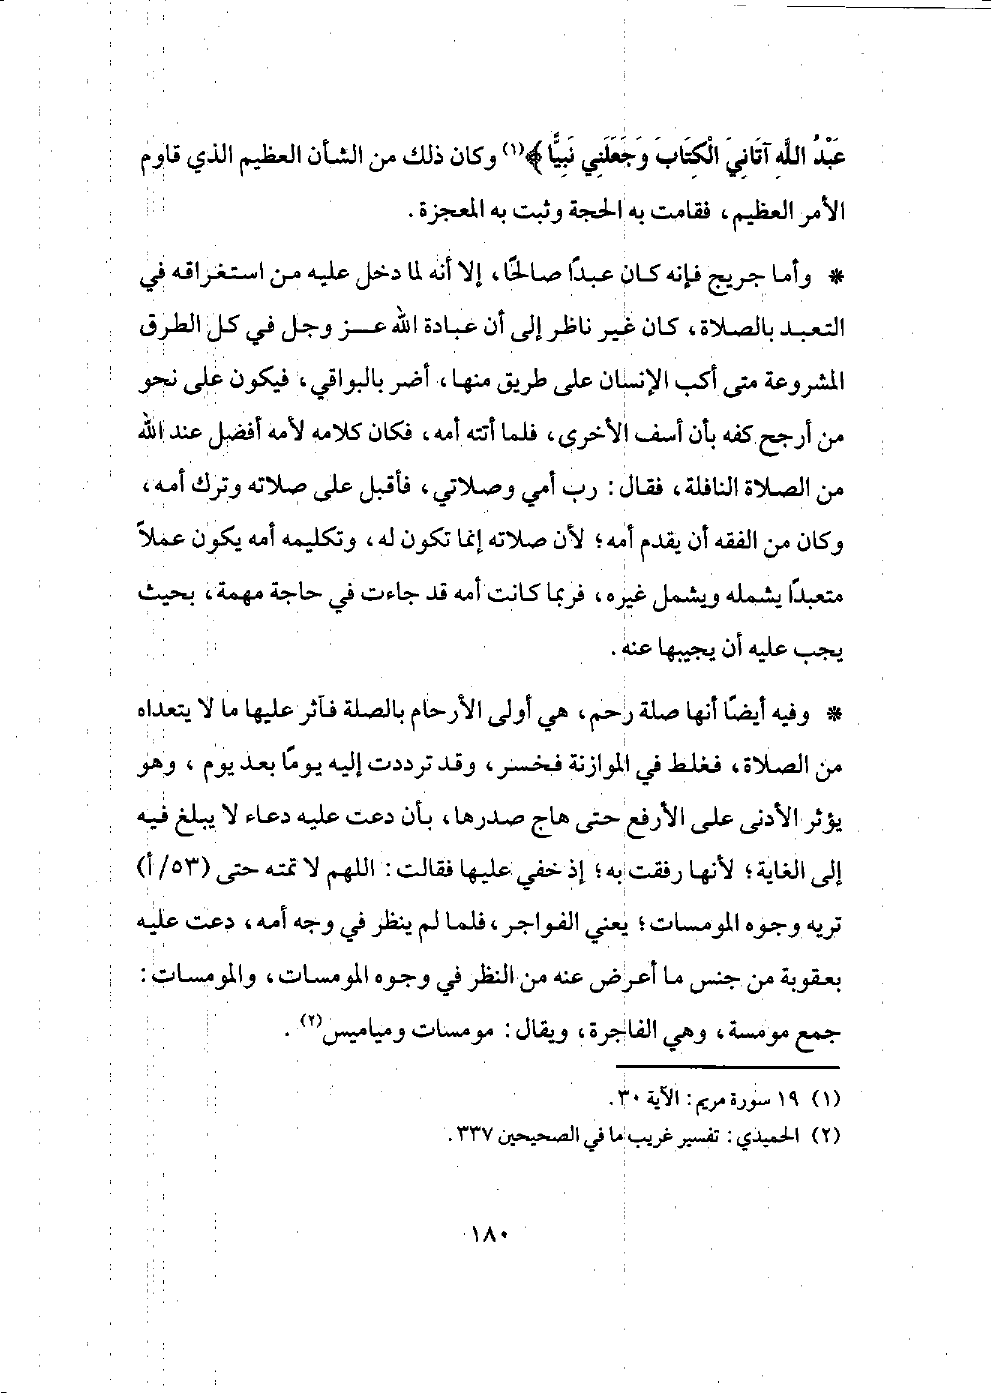 عَبْدُ اللَّهِ آتَانِيَ الْكِتَابَ وَجَعَلَنِي نَبِيًّا﴾(١) وكان ذلك من الشأن العظيم الذي قاوم
الأمر العظيم، فقامت به الحجة وثبت به المعجزة.
* وأما جريج فإنه كان عبدًا صالحًا، إلا أنه لما دخل عليه من استغراقه في
التعبد بالصلاة، كان غير ناظر إلى أن عبادة الله عز وجل في كل الطرق
المشروعة متى أكب الإنسان على طريق منها، أضر بالبواقي، فيكون على نحو
من أرجح كفه بأن أسف الأخرى، فلما أتته أمه، فكان كلامه لأمه أفضل عند الله
من الصلاة النافلة، فقال: رب أمي وصلاتي، فأقبل على صلاته وترك أمه،
وكان من الفقه أن يقدم أمه؛ لأن صلاته إنما تكون له، وتكليمه أمه يكون عملاً
متعبدًا يشمله ويشمل غيره، فربما كانت أمه قد جاءت في حاجة مهمة، بحيث
يجب عليه أن يجيبها عنه.
* وفيه أيضًا أنها صلة رحم، هي أولى الأرحام بالصلة فآثر عليها ما لا يتعداه
من الصلاة، فغلط في الموازنة فخسر، وقد ترددت إليه يومًا بعد يوم، وهو
يؤثر الأدنى على الأرفع حتى هاج صدرها، بأن دعت عليه دعاء لا يبلغ فيه
إلى الغاية؛ لأنها رفقت به؛ إذ خفي عليها فقالت: اللهم لا تمته حتى (٥٣/أ)
تريه وجوه المومسات؛ يعني الفواجر، فلما لم ينظر في وجه أمه، دعت عليه
بعقوبة من جنس ما أعرض عنه من النظر في وجوه المومسات، والمومسات:
جمع مومسة، وهي الفاجرة، ويقال: مومسات ومياميس(٢).
(١) ١٩ سورة مريم: الآية ٣٠.
(٢) الحميدي: تفسير غريب ما في الصحيحين ٣٣٧.
١٨٠